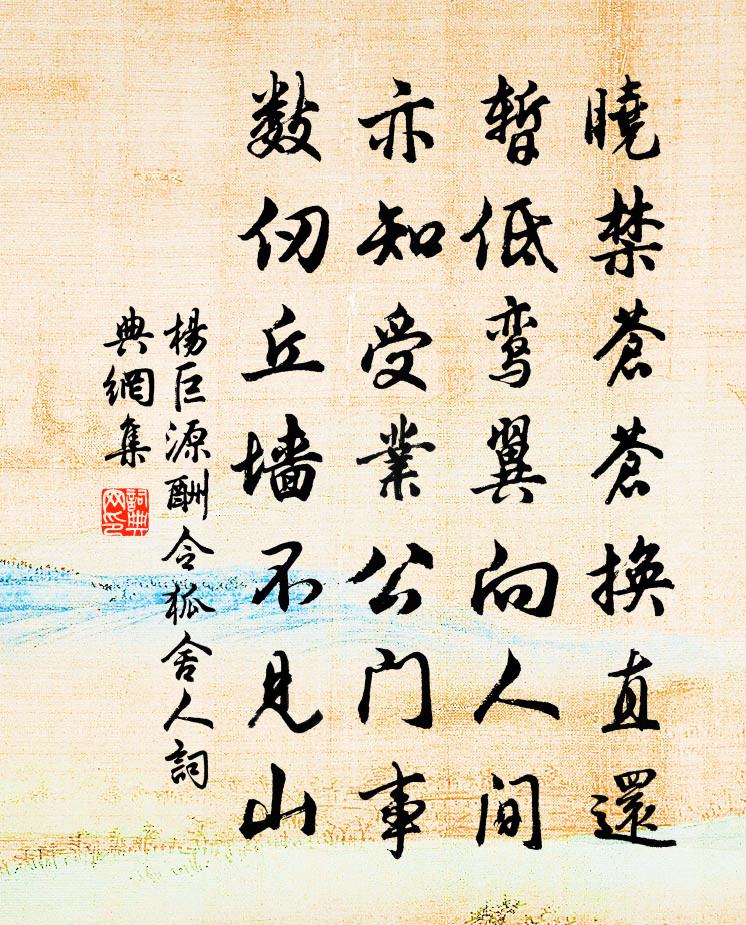 曉禁蒼蒼換直還
暫低鸾翼向人間
亦知受業公門事
數仞丘墙不見山
楊巨源酬令狐舍人詞
典網集
詞典
网印